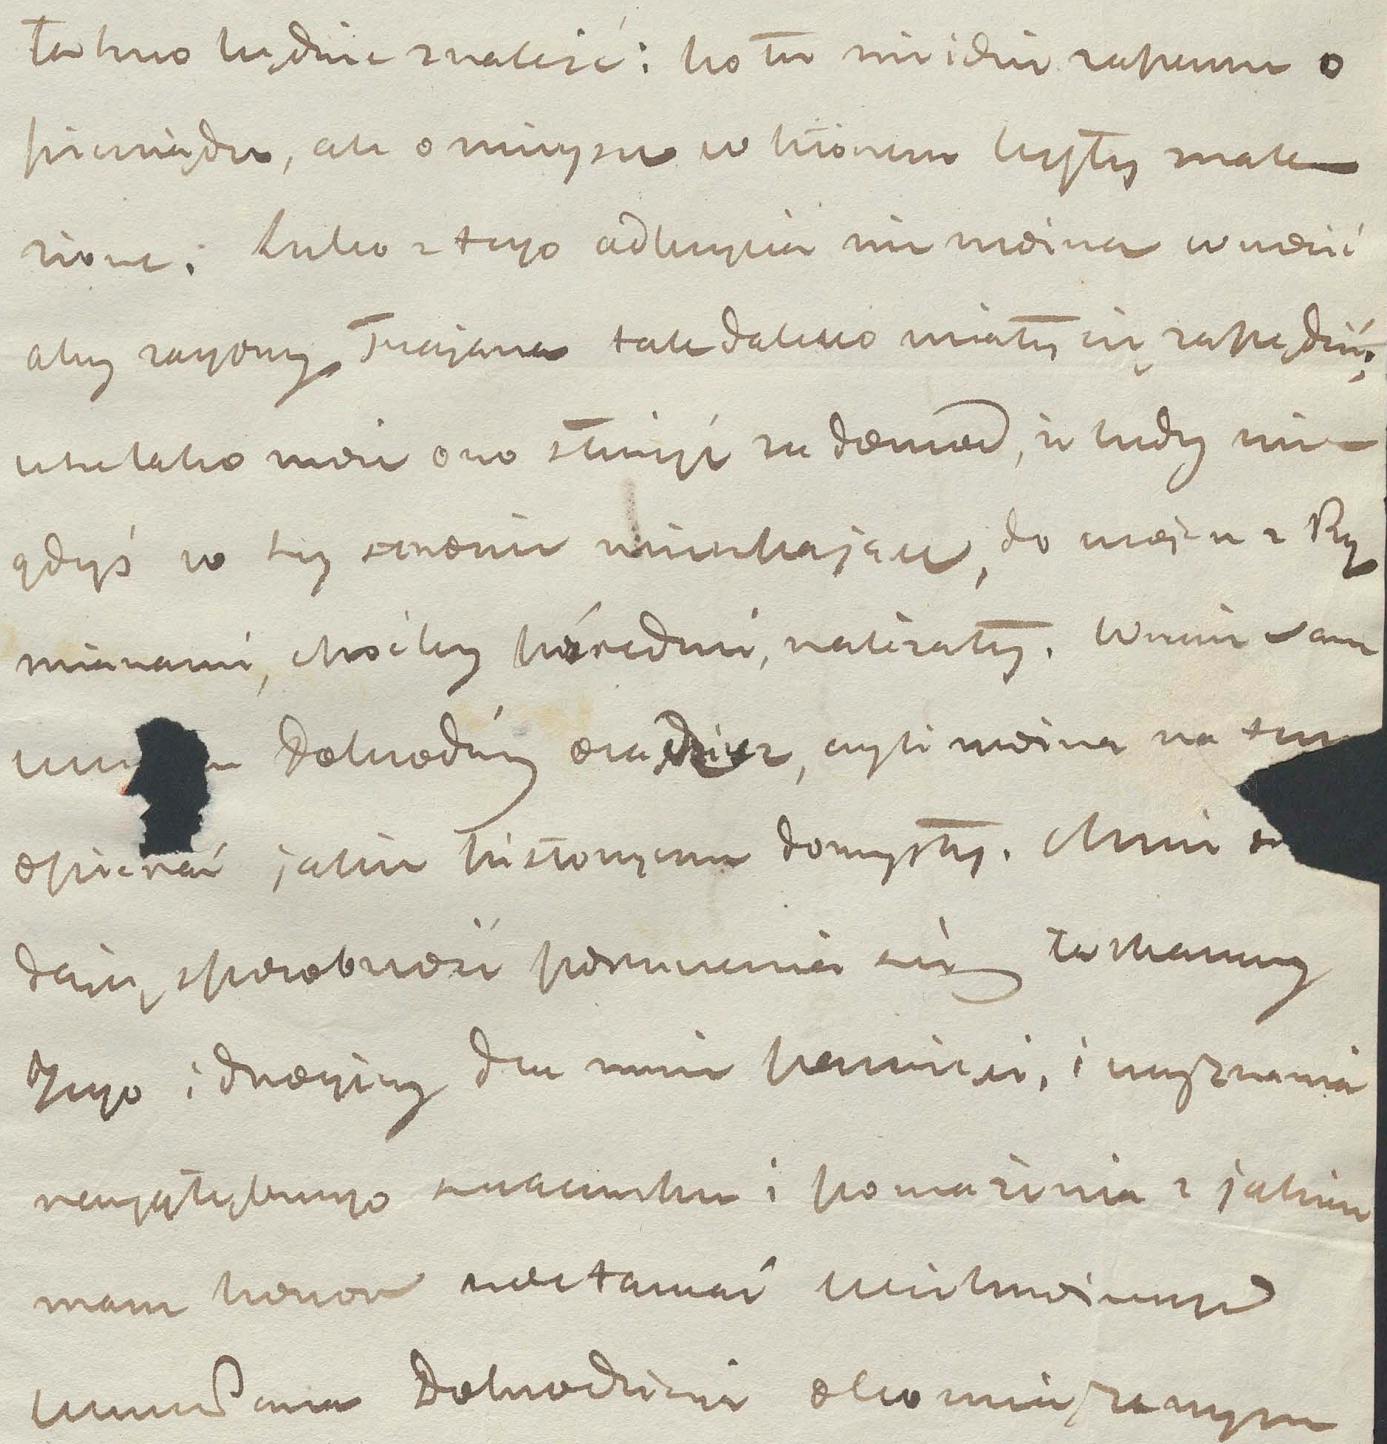 łatwo będzie znaleść: bo tu nie idzie zapewne o
pieniądze, ale o miejsce w którem były znale
zione; Lubo z tego odkrycia nie można wnosić
aby zagony Trajana tak daleko miały się zapędzić;
wszelako może ono służyć za dowód, że ludy nie
gdyś w tej stronie mieszkające, do wojen z Rzy
mianami, choćby pośrednie, należały. Wreście sam
Dobrodziej osądzisz, czyli można na tem
opierać jakie historyczne domysły. Mnie
daję sposobność pomnienia się łaskawej
Jego i drogiej dla mnie pamięci, i wyznania
najgłębszego szacunku i poważania z jakiem
mam honor zostawać Wielmożnego
Pana Dobrodzieja obowiązanym